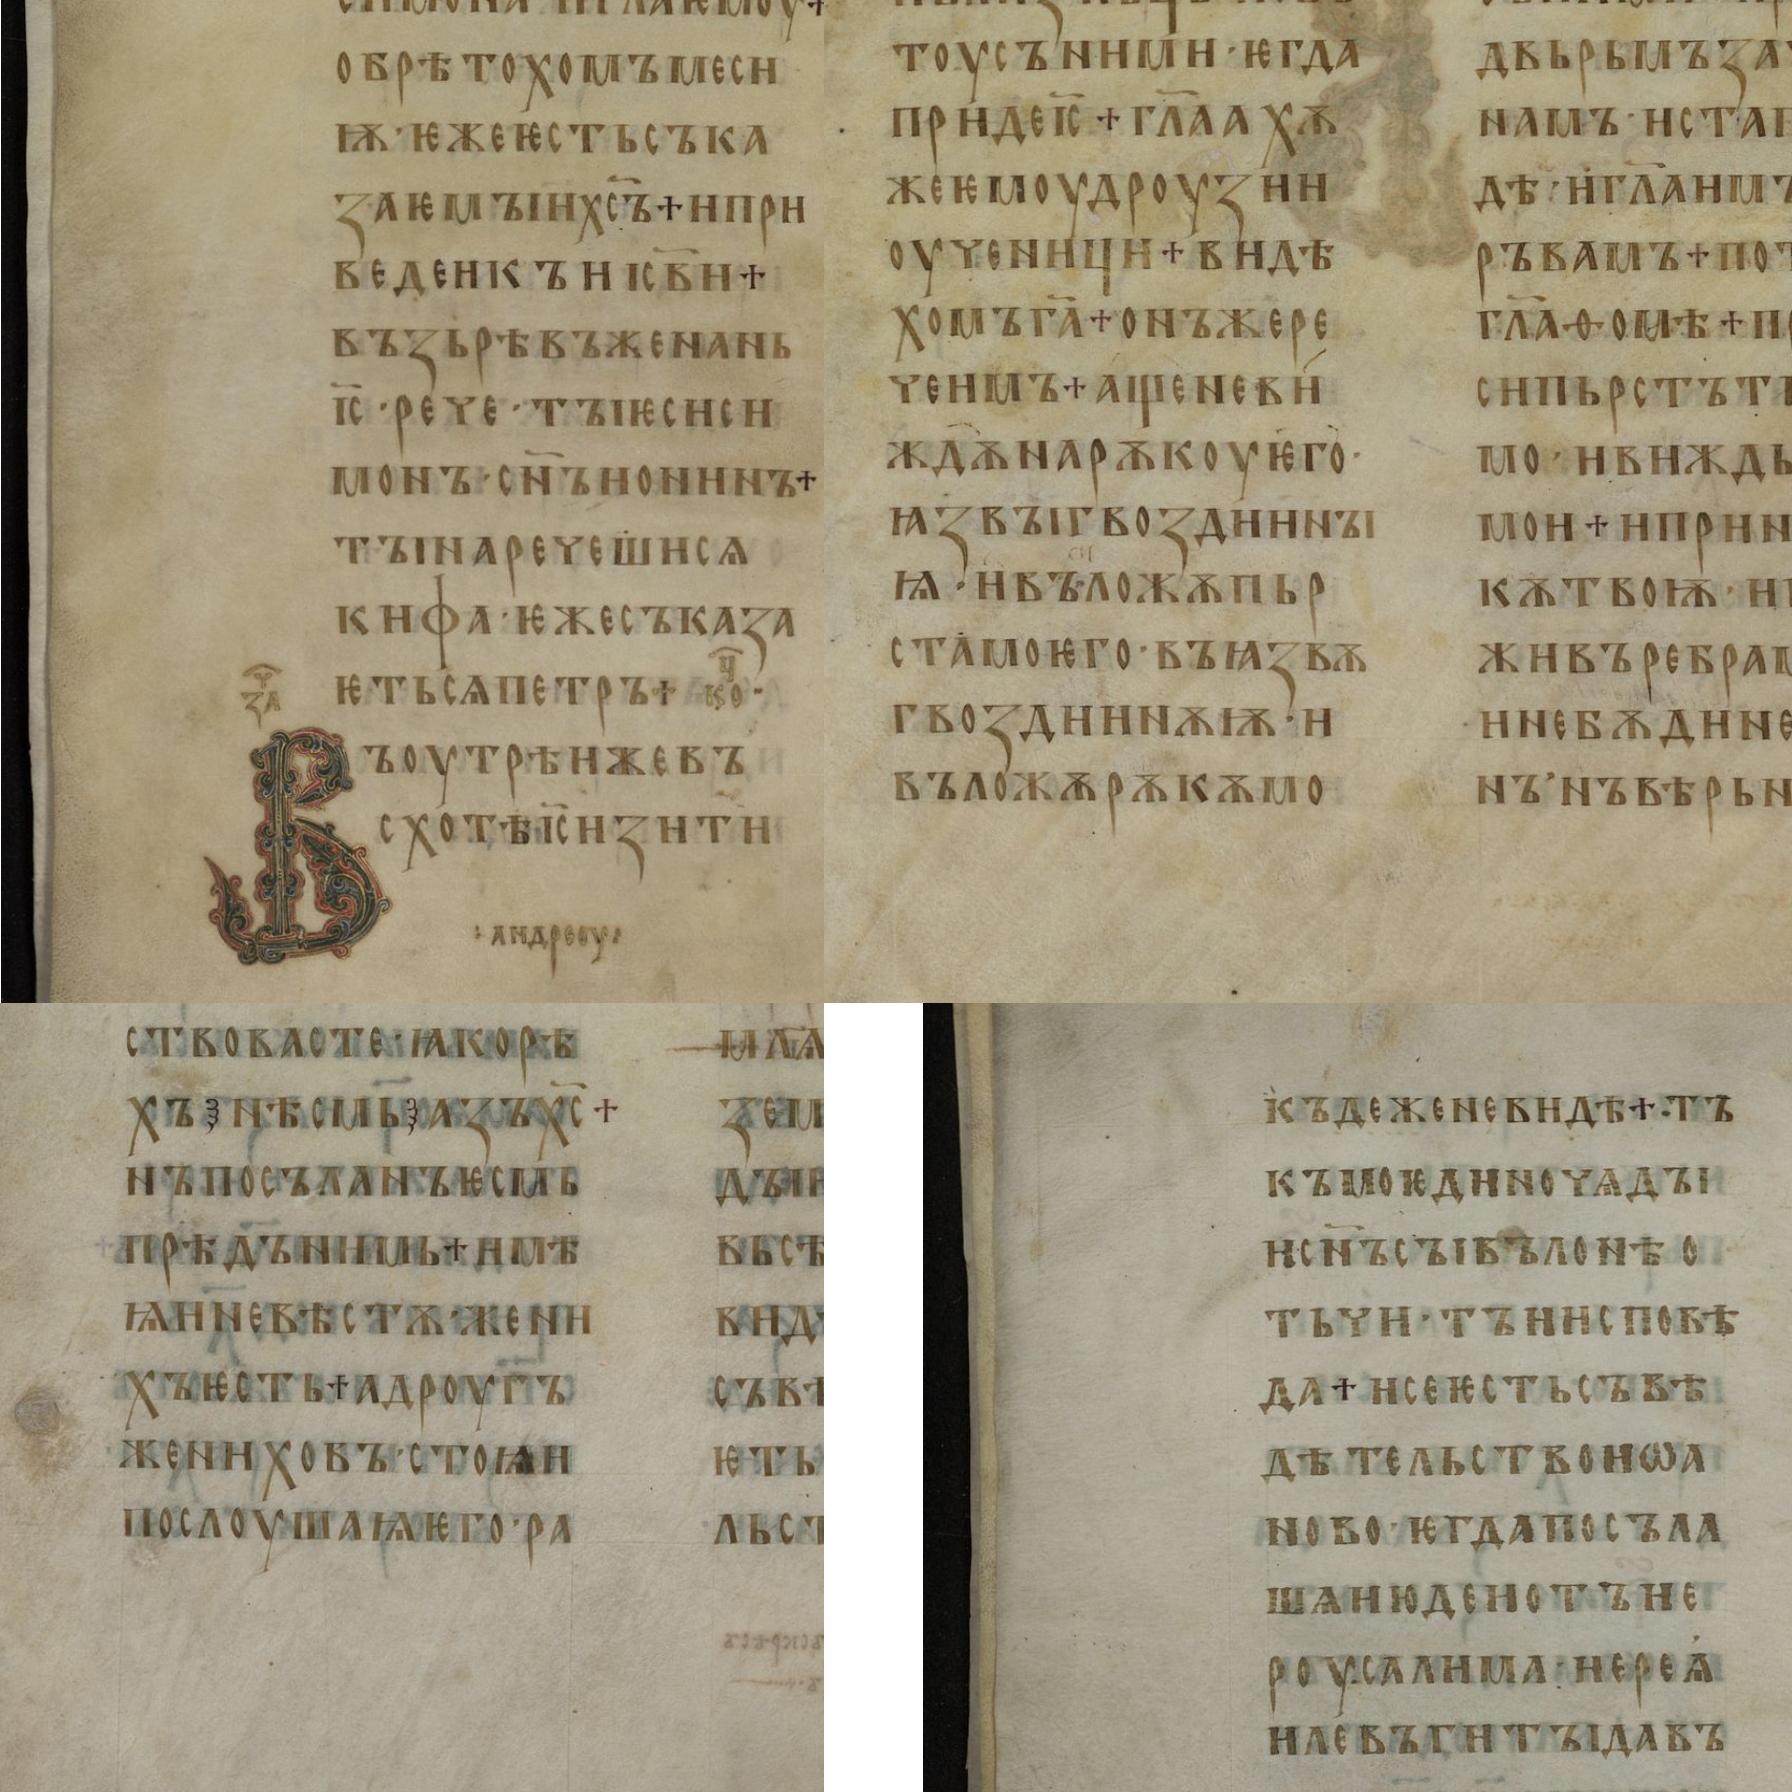 обрѣтохомъмеси
ѭ·ѥжеѥстьсъка
заѥмъіих҃съ+ипри
ведеикъниі҃сви+
възьрѣвъженань
і҃с·рече·тъіѥсиси
монъ·с҃нъионинъ+
тъінаречешися
кифа·ѥжесъказа
ѥтьсѧпетръ+ ко҃ц·
за҃ч
Въоутрѣижевъ
схотѣі҃сизити
:андреоу:
тоусъними·ѥгда
придеі҃с+гл҃аахѫ
жеѥмоудроузии
оученици+видѣ
хомъг҃а+онъжере
чеимъ+ащеневи
ждѫнарѫкоуѥго·
ꙗзвъігвоздинъі
си
ѩ·ивъложѫпьр
стамоѥго·въꙗзвѫ
гвоздинѫѭ·и
въложѫрѫкѫмо
двьрьмъза
намъ·иста
дѣ·игл҃аимъ
ръвамъ+по
гл҃аѳомѣ+п
сипьрстътв
мо·ивиждь
мои+ипри
кѫтвоѭ·и
живъребра
ииебѫдине
нъ'нъвѣрьн
ствовасте·ꙗкорѣ
хъꙁнѣсмьꙁазъх҃с+
нъпосъланъѥсмь
прѣдънимь+имѣ
ѩиневѣстѫ·жени
хъѥсть+адроугъ
жениховъ·стоѩи
послоушаѩѥго·ра
мл҃ѧ
зем
дъін
вьсѣ
вид
съвѣ
ѥть
льст
къдеженевидѣ+·тъ
къмоѥдиночѧдъі
ис҃нъсъівълонѣо
тьчи·тъиисповѣ
да+исеѥстьсъвѣ
дѣтельствоиѡа
ново·ѥгдапосъла
шѧиюдеиотъие
роусалима·иереѧ
илевъгитъідавъ